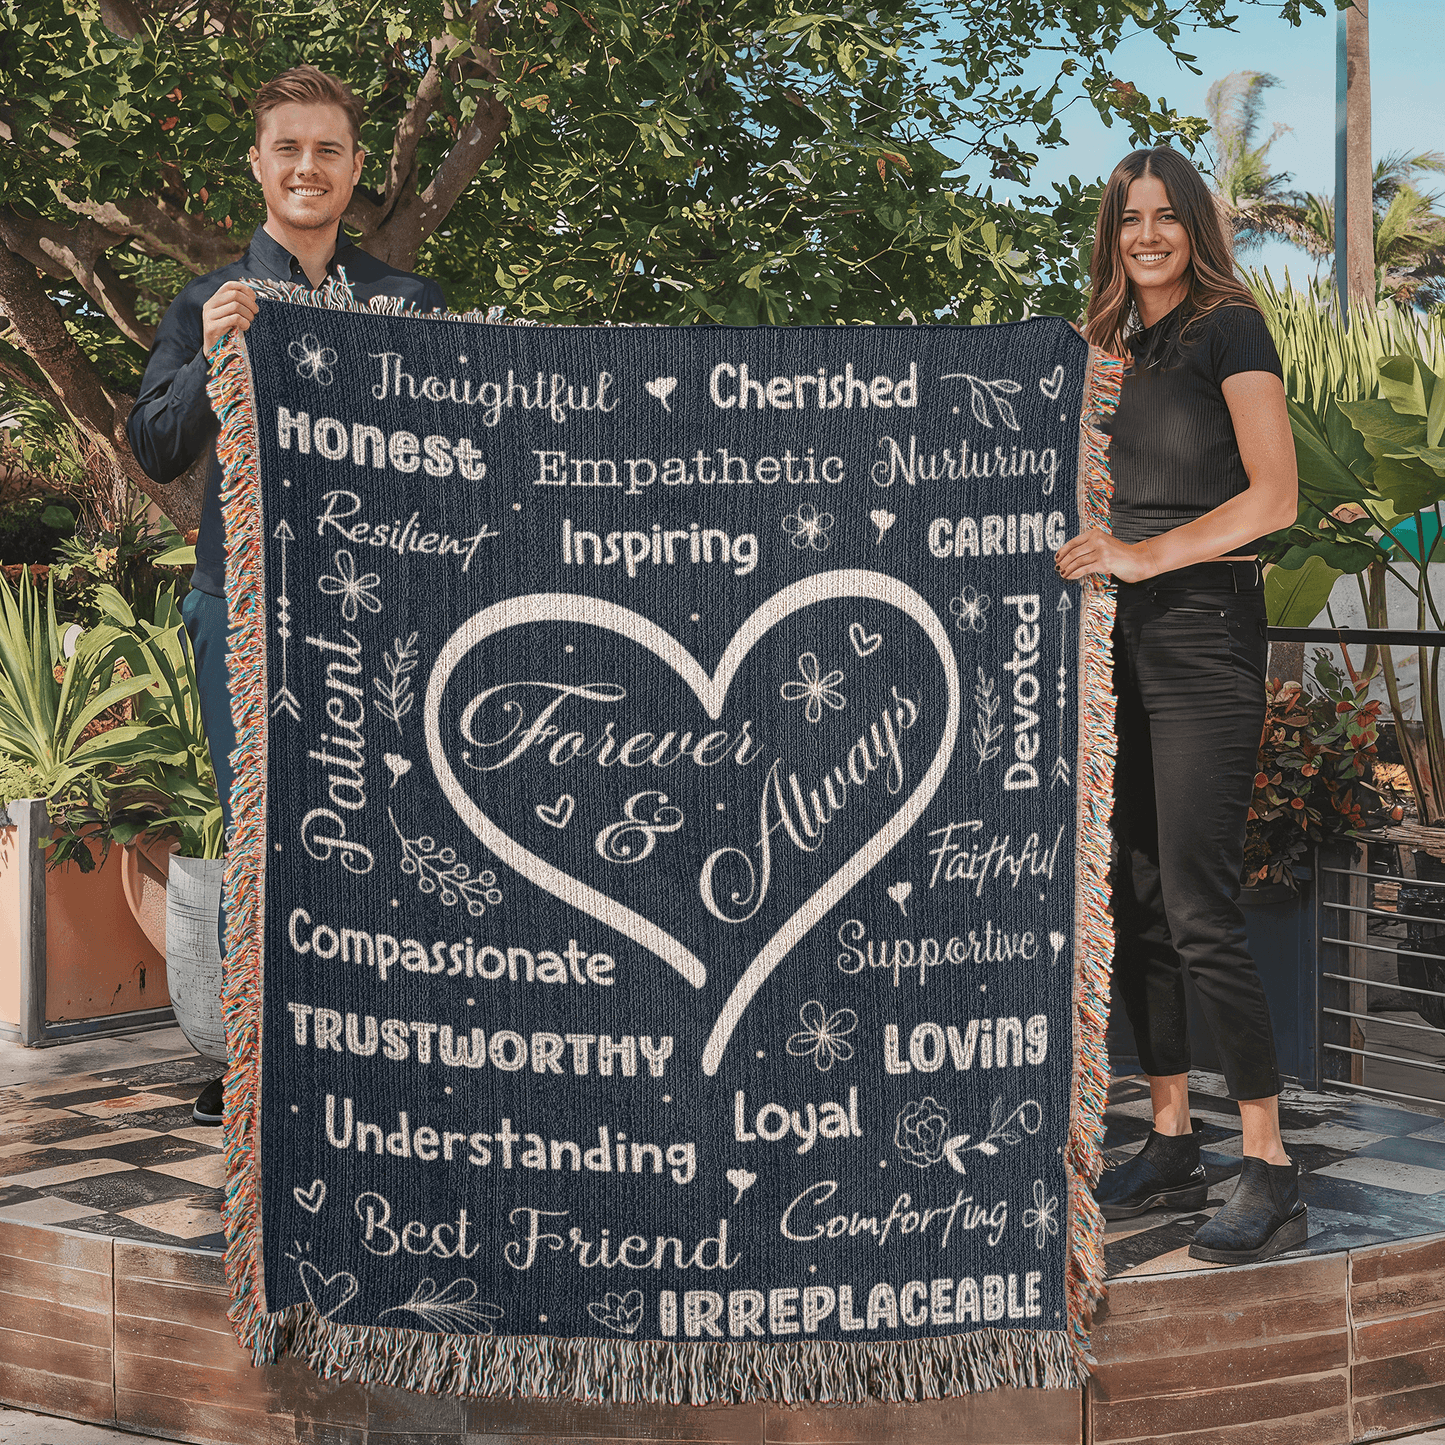 Thoughtful Cherished
Honest Empathetic Nurturing
Resilient Inspiring CARING
Patient
Forever
&
Always
Devoted
Faithful
Compassionate Supportive
TRUSTWORTHY LOVing
Understanding Loyal
Best Friend Comforting
IRREPLACEABLE